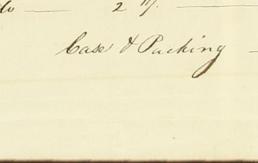 do — 2 "/. —
Case & Packing —